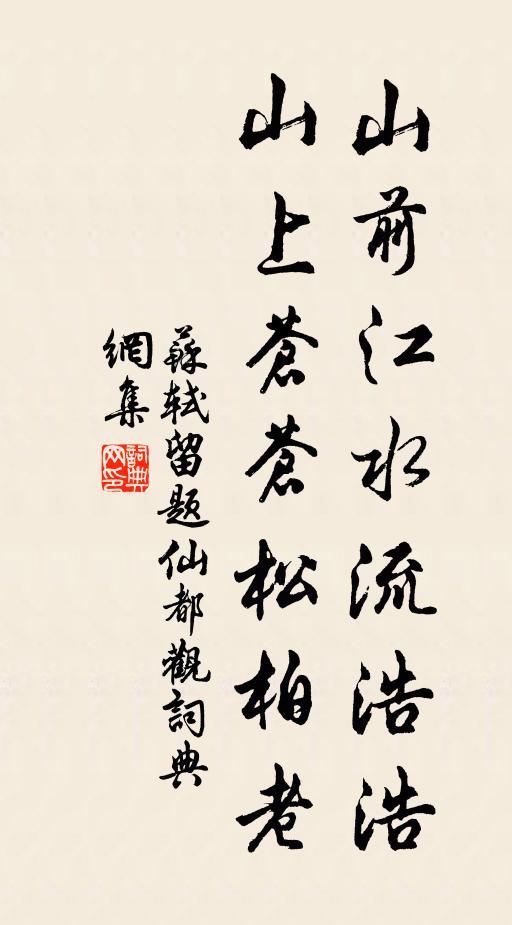 山前江水流浩浩
山上蒼蒼松柏老
蘇軾留題仙都觀詞典
網集
詞典网印